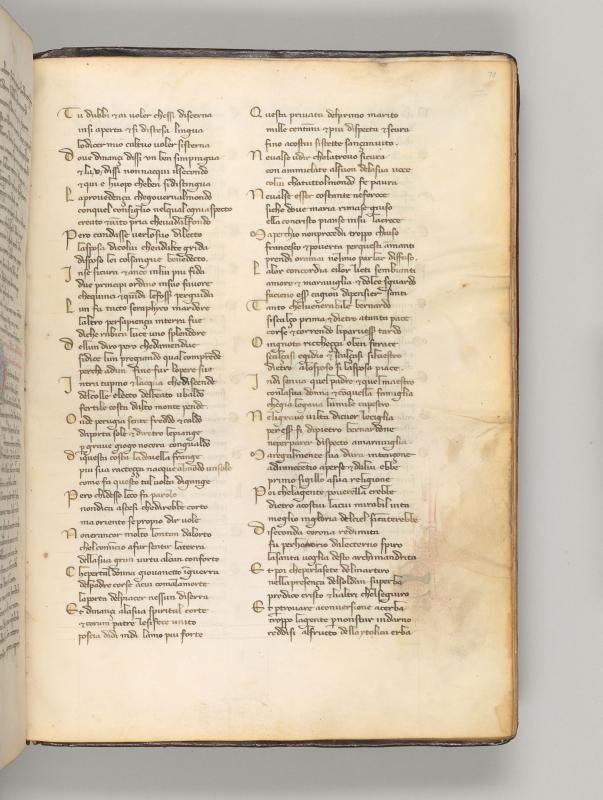 Tu dubbi & ai voler chessi discerna
insi aperta & si distesa lingua
lodicer mio caltuo voler si sterna
Doue dinançi dissi un ben simpingua
& la u dissi non nacqui ilsecondo
& qui e huopo cheben sidistingua
La prouedença chegouernalmondo
conquel consiglio nelqual ogni aspecto
creato e uito pria cheuadalfondo
Pero candasse verlosuo dilecto
lasposa dicolui chenalte grida
disposo lei colsangue benedecto
Inse sicura & anco allui piu fida
due principi ordino insuo fauore
chequinci & quindi lefosser perguida
Lun fu tucto seraphyco inardore
laltro persapiença interra fue
diche rubica luce uno splendore
Dellun diro pero chedamendue
sidice lun pregiando qual comprende
perche adun fine fur lopere sue
Intra tupino & lacqua chediscende
delcolle electo delbeato ubaldo
fertile costa dalto monte pende
Onde perugia sente freddo & caldo
daporta sole & diretro lepiange
per graue giogo nocera congualdo
Diquesta costa la douella frange
piu sua rattecça nacque almondo un sole
come fa questo tal uolta digange
Pero chidesso loco fa parole
nondica ascesi chedirebbe corto
ma oriente se proprio dir vole
Non era ancor molto lontan dalorto
chel comincio afar sentir laterra
della sua gran uirtu alcun conforto
Chepertal donna giouanecto inguerra
delpadre corse acui comalamorte
laporta delpiacer nessun diserra
Et dinançi alasua spirital corte
& coram patre lesifece unito
poscia didi indi lamo piu forte
Questa priuata delprimo marito
mille centanni & piu dispecta & scura
fino acostui sistette sançinuito
Neualse udir chelatrouo sicura
con amiclate alsuon delasua uoce
colui chatuttolmondo fe paura
Neualse esser costante neferoce
siche doue maria rimase giuso
ella concristo pianse insu lacroce
Ma perchio nonproceda troppo chiuso
francesco & pouerta perquesti amanti
prendi oramai nelmio parlar diffuso
Lalor concordia eilor lieti sembianti
amore & marauiglia & dolce sguardo
facieno esser cagion dipensier santi
Tanto cheluenerabile bernardo
siscalço prima & dietro atanta pace
corse & correndo liparuesser tardo
O ingnota ricchecça oben ferace
scalçasi egidio & scalçasi siluestro
dietro alosposo si lasposa piace
Indi senua quel padre & quel maestro
conlasua donna & conquella famiglia
chegia legaua lumile capestro
Neligrauo uilta dicuor leciglia
peresser fi dipietro bernardone
neper parer dispecto amarauiglia
Ma regalmente sua dura intençione
adinnocentio aperse & dalui ebbe
primo sigillo asua religione
Poi chelagente pouerella crebbe
dietro acostui lacui mirabil uita
meglio ingloria delciel sicanterebbe
Di seconda corona redimita
fu perhonorio dalecterno spiro
lasanta voglia desto archimandrita
Et poi cheperlasete delmartiro
nella presença delsoldan superba
predico cristo & lialtri chelseguiro
Et pertrouare aconuersione acerba
troppo lagente & pernonistar indarno
reddisi alfructo dellaytalica erba